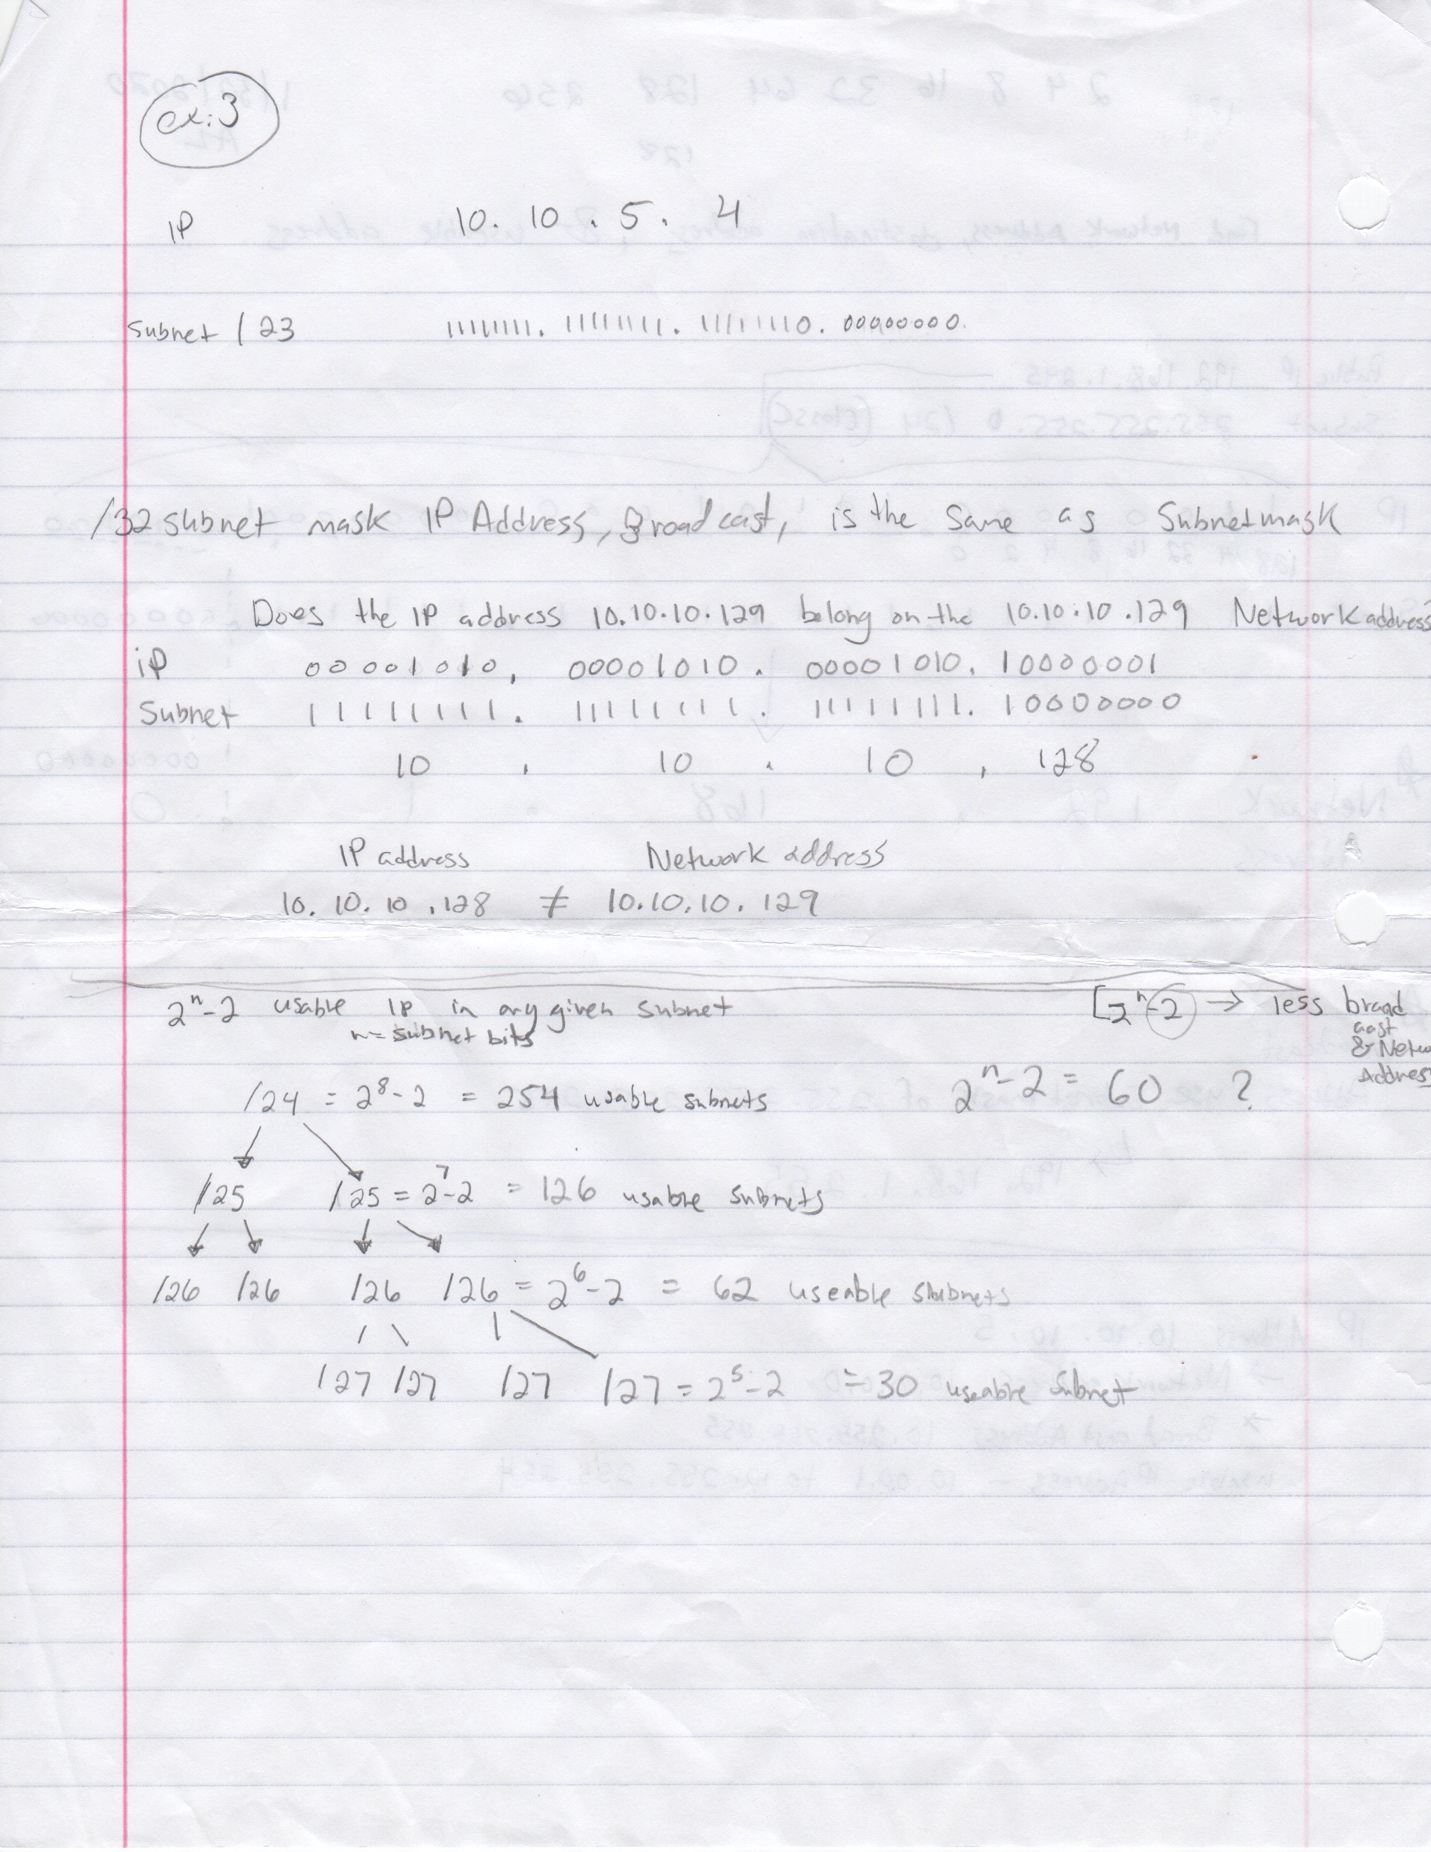 ex: 3
IP 10. 10 . 5. 4
Subnet / 23 11111111. 11111111. 11111110. 00000000.
/32 subnet mask IP Address, Broadcast, is the same as Subnetmask
Does the IP address 10.10.10.129 belong on the 10.10.10.129 Network address?
iP 00001010, 00001010. 00001010. 10000001
Subnet 11111111. 11111111. 11111111. 10000000
10 . 10 . 10 . 128
IP address Network address
10. 10. 10 .128 ≠ 10.10.10. 129
2ⁿ-2 usable IP in any given subnet [2ⁿ-2 → less broad
n = subnet bits cast
& Netw
Address
/24 = 2⁸-2 = 254 usable subnets 2ⁿ-2 = 60 ?
/25 /25 = 2⁷-2 = 126 usable subnets
/26 /26 /26 /26 = 2⁶-2 = 62 useable subnets
/27 /27 /27 /27 = 2⁵-2 = 30 useable subnet